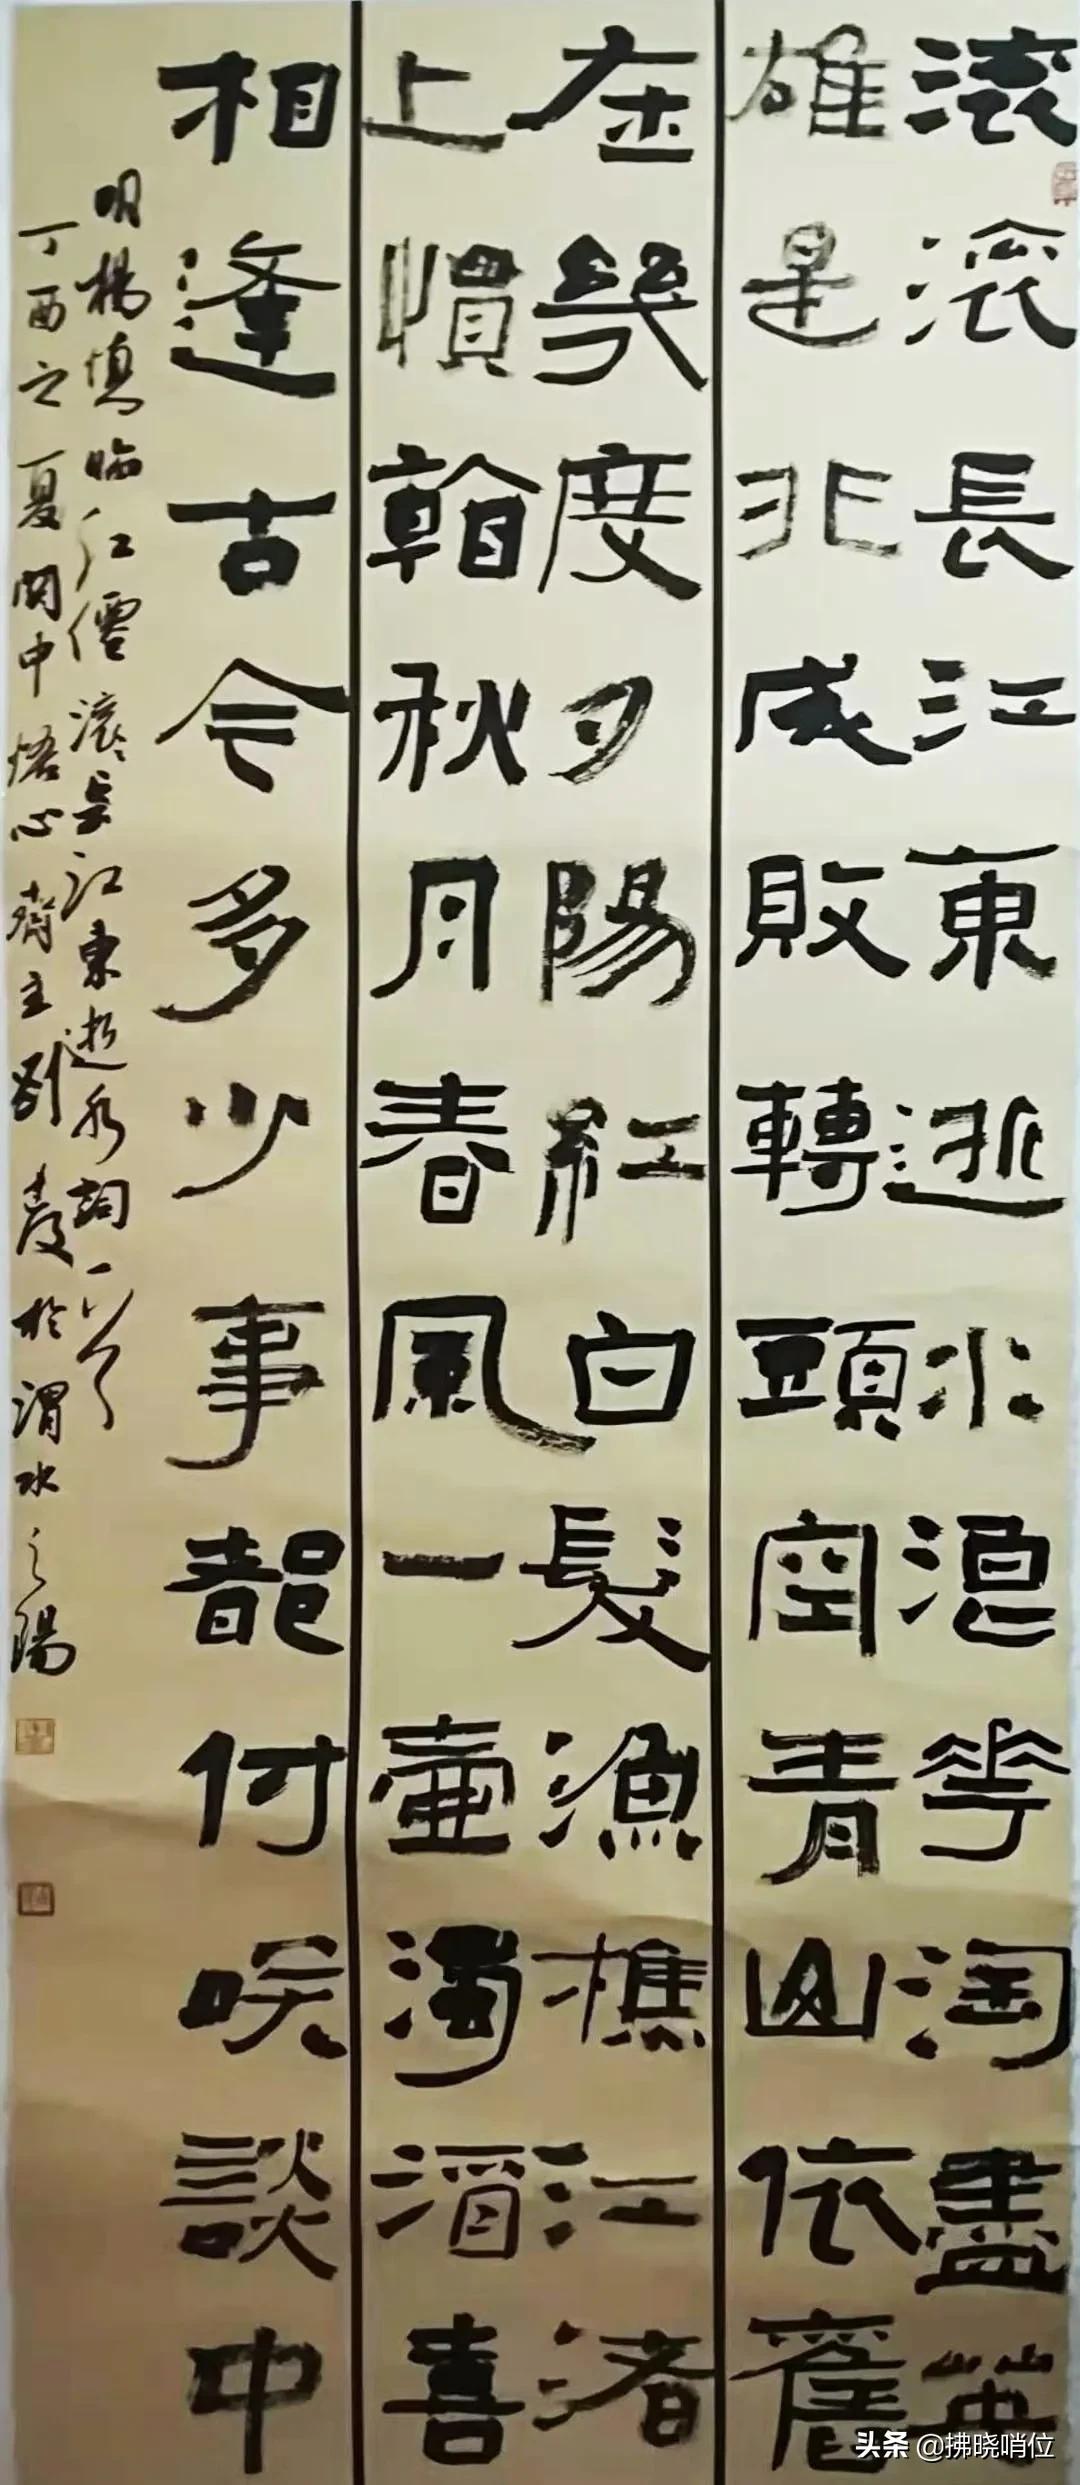 滚滚長江東逝水浪花淘盡英
雄是非成敗轉頭空青山依舊
在幾度夕陽紅白髮漁樵江渚
上慣看秋月春風一壺濁酒喜
相逢古今多少事都付咲談中
明楊慎臨江僊滚滚長江東逝水詞一首
丁酉之夏関中悟心齋主劉於渭水之陽
头条 @拂晓哨位